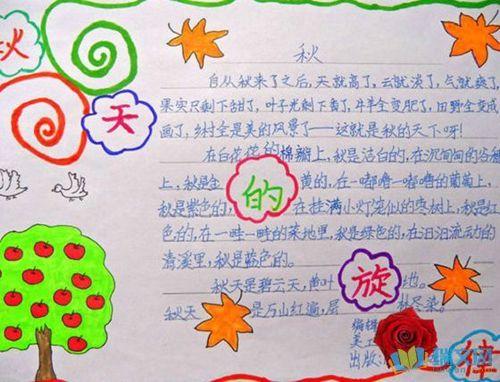 秋
秋
天
自从秋来了之后，天就高了，云就淡了，气就爽了，
果实尽剩下甜了，叶子光剩下黄了，牛羊全变肥了，田野全变成
画了，乡村全是美的风景了——这就是秋的天下呀！
在白花花的棉瓣上，秋是洁白的，在沉甸甸的谷穗
上，秋是金 黄的，在一嘟噜一嘟噜的葡萄上，
的
秋是紫色的，在挂满小灯笼似的枣树上，秋是红
色的，在一畦一畦的菜地里，秋是绿色的，在汩汩流动的
清溪里，秋是蓝色的。
秋天是碧云天，黄叶 地。
旋
秋天 是万山红遍，层 林尽染。
编辑
美工
出版
律